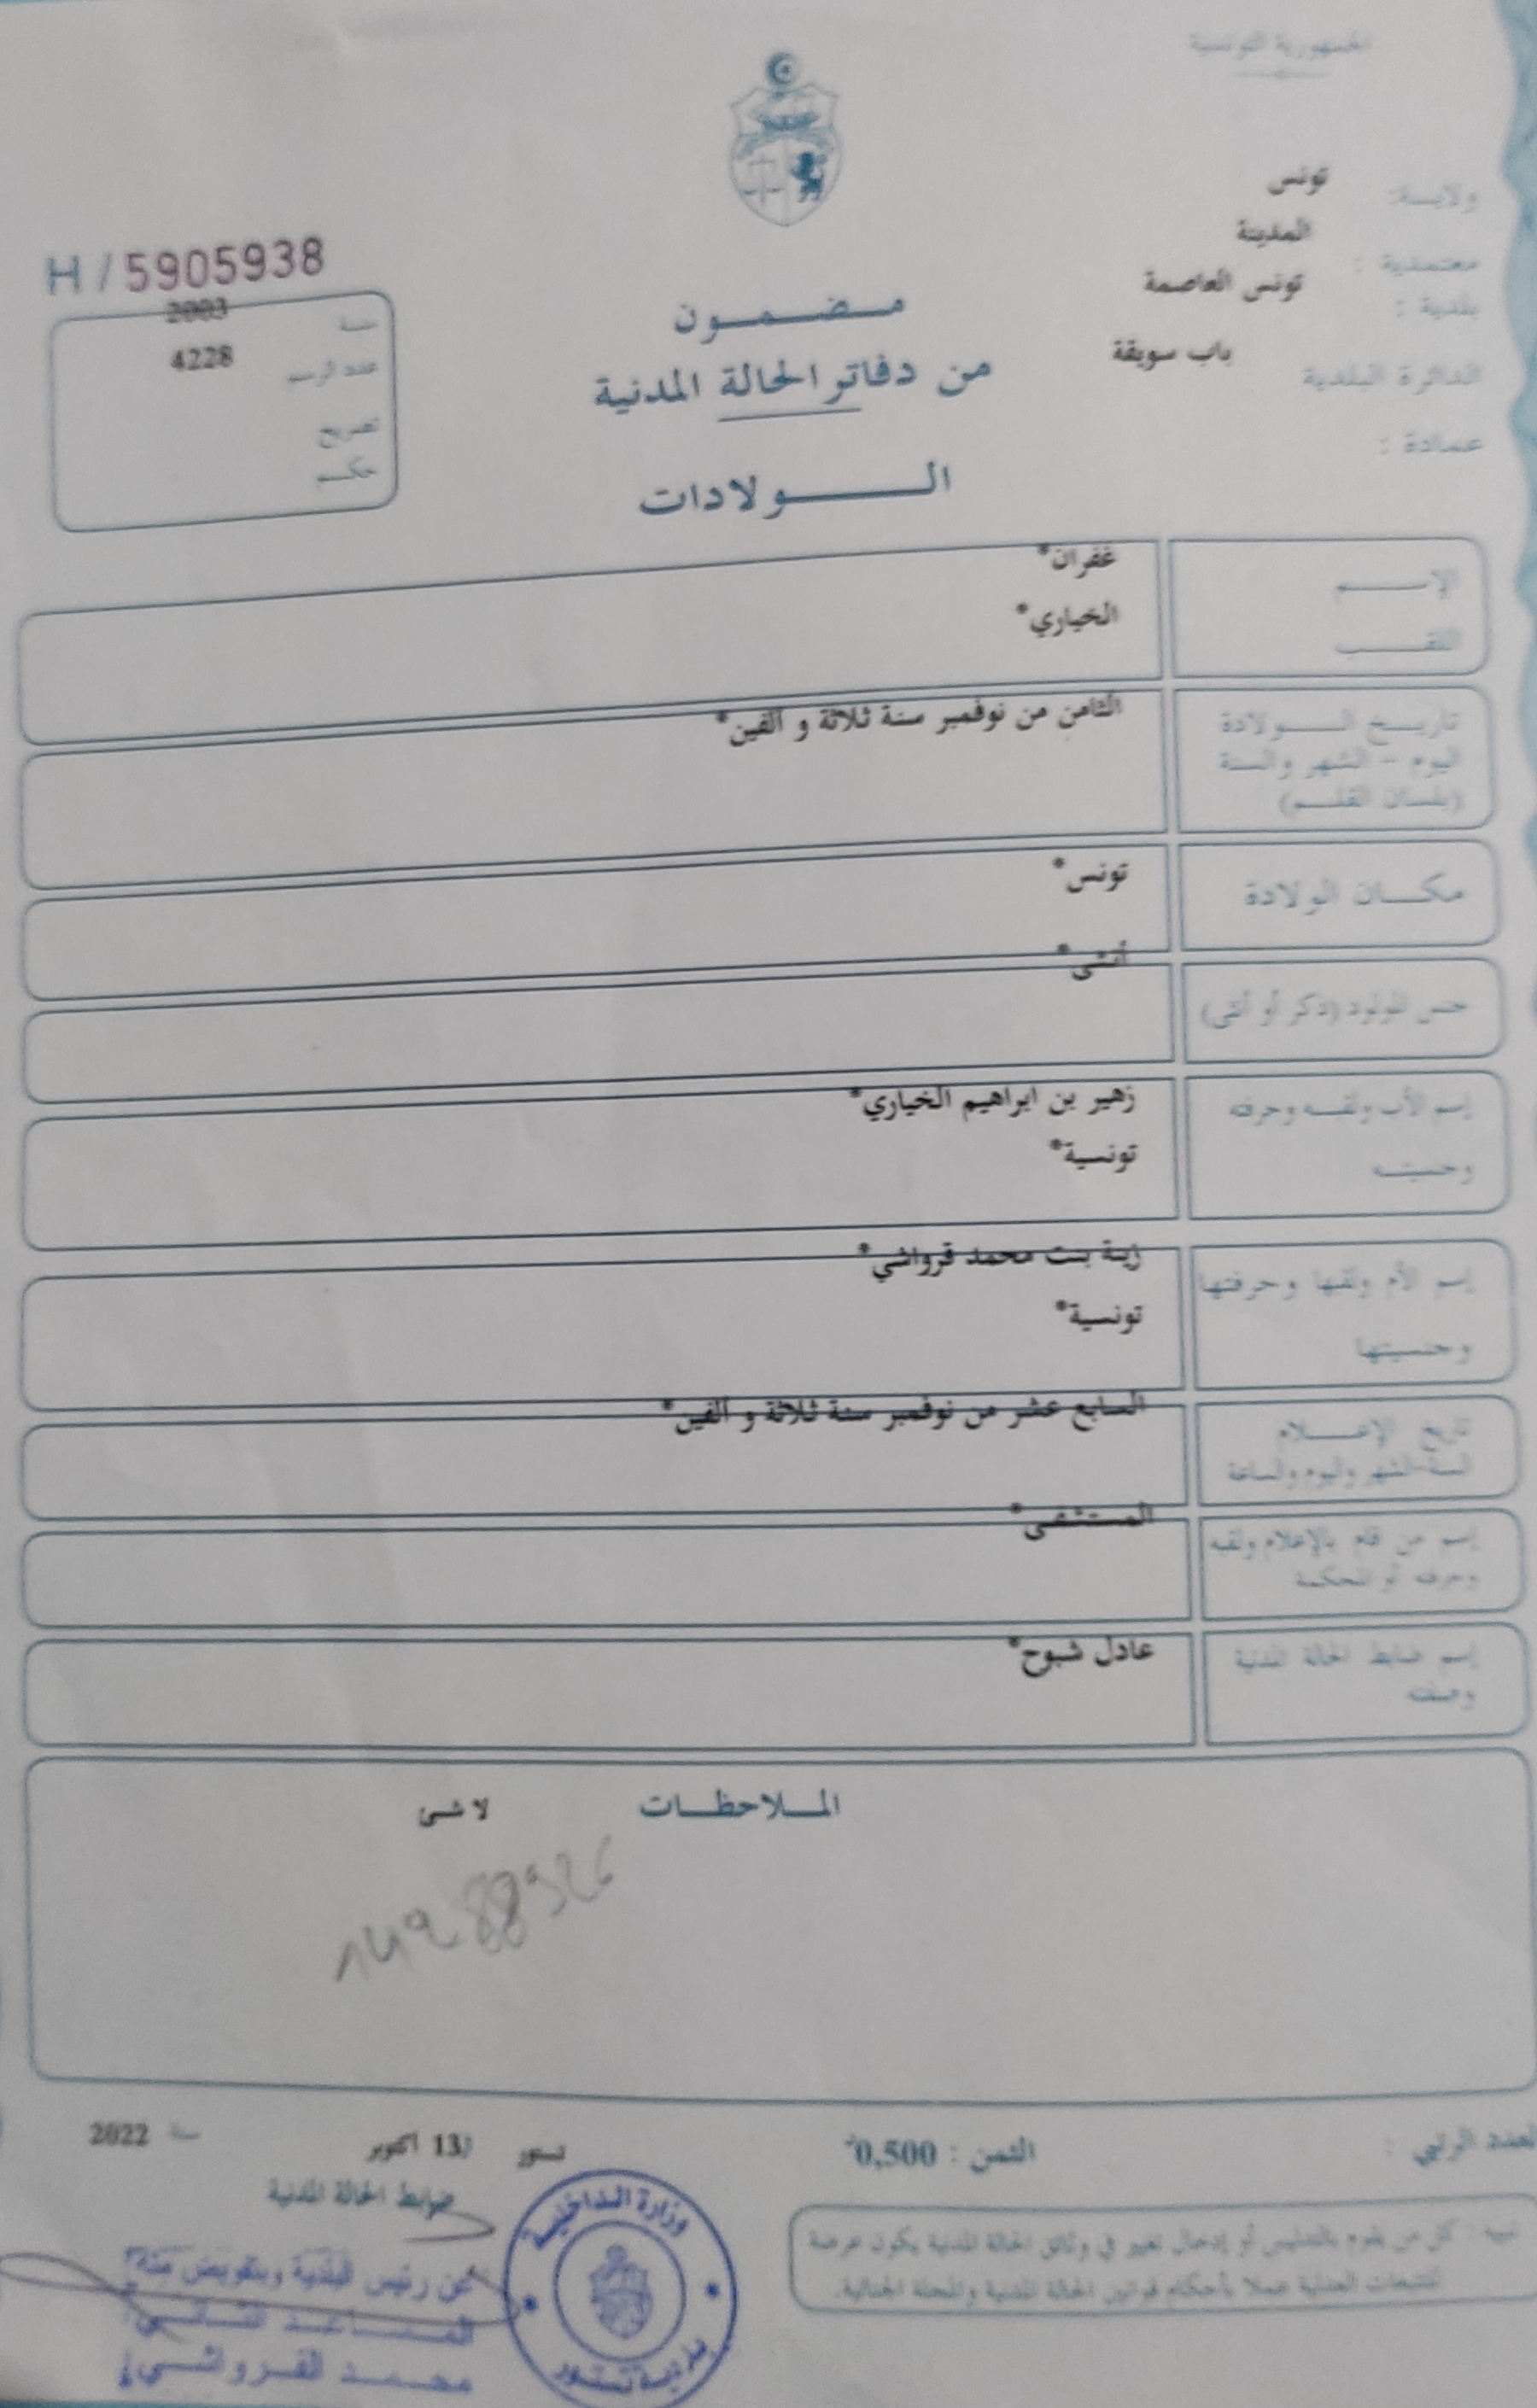 الجمهورية التونسية
ولايــة: تونس
معتمدية : المدينة
بلدية : تونس العاصمة
الدائرة البلدية باب سويقة
عمادة :
H / 5905938
سنة 2003
عدد الرسم 4228
تصريح
حكم
مضمون
من دفاتر الحالة المدنية
الولادات
الإسم غفران*
اللقب الخياري*
تاريخ الولادة الثامن من نوفمبر سنة ثلاثة و ألفين*
اليوم - الشهر والسنة
(بلسان القلم)
مكان الولادة تونس*
جنس المولود (ذكر أو أنثى) أنثى*
إسم الأب ولقبه وحرفته زهير بن ابراهيم الخياري*
وجنسيته تونسية*
إسم الأم ولقبها وحرفتها زينة بنت محمد قرواشي*
وجنسيتها تونسية*
تاريخ الإعلام السابع عشر من نوفمبر سنة ثلاثة و ألفين*
السنة-الشهر واليوم والساعة
إسم من قام بالإعلام ولقبه المستشفى*
وحرفته أو المحكمة
إسم ضابط الحالة المدنية عادل شبوح*
وصفته
الملاحظات لا شىء
العدد الرتبي :
الثمن : 0,500د
تستور 13 اكتوبر سنة 2022
ضابط الحالة المدنية
عن رئيس البلدية وبتفويض منه
المساعد الثاني:
محمد القرواشي
وزارة الداخلية
بلدية تستور
تنبيه : كل من يقوم بالتدليس أو إدخال تغيير في وثائق الحالة المدنية يكون عرضة
للتتبعات العدلية عملا بأحكام قوانين الحالة المدنية والمجلة الجنائية.